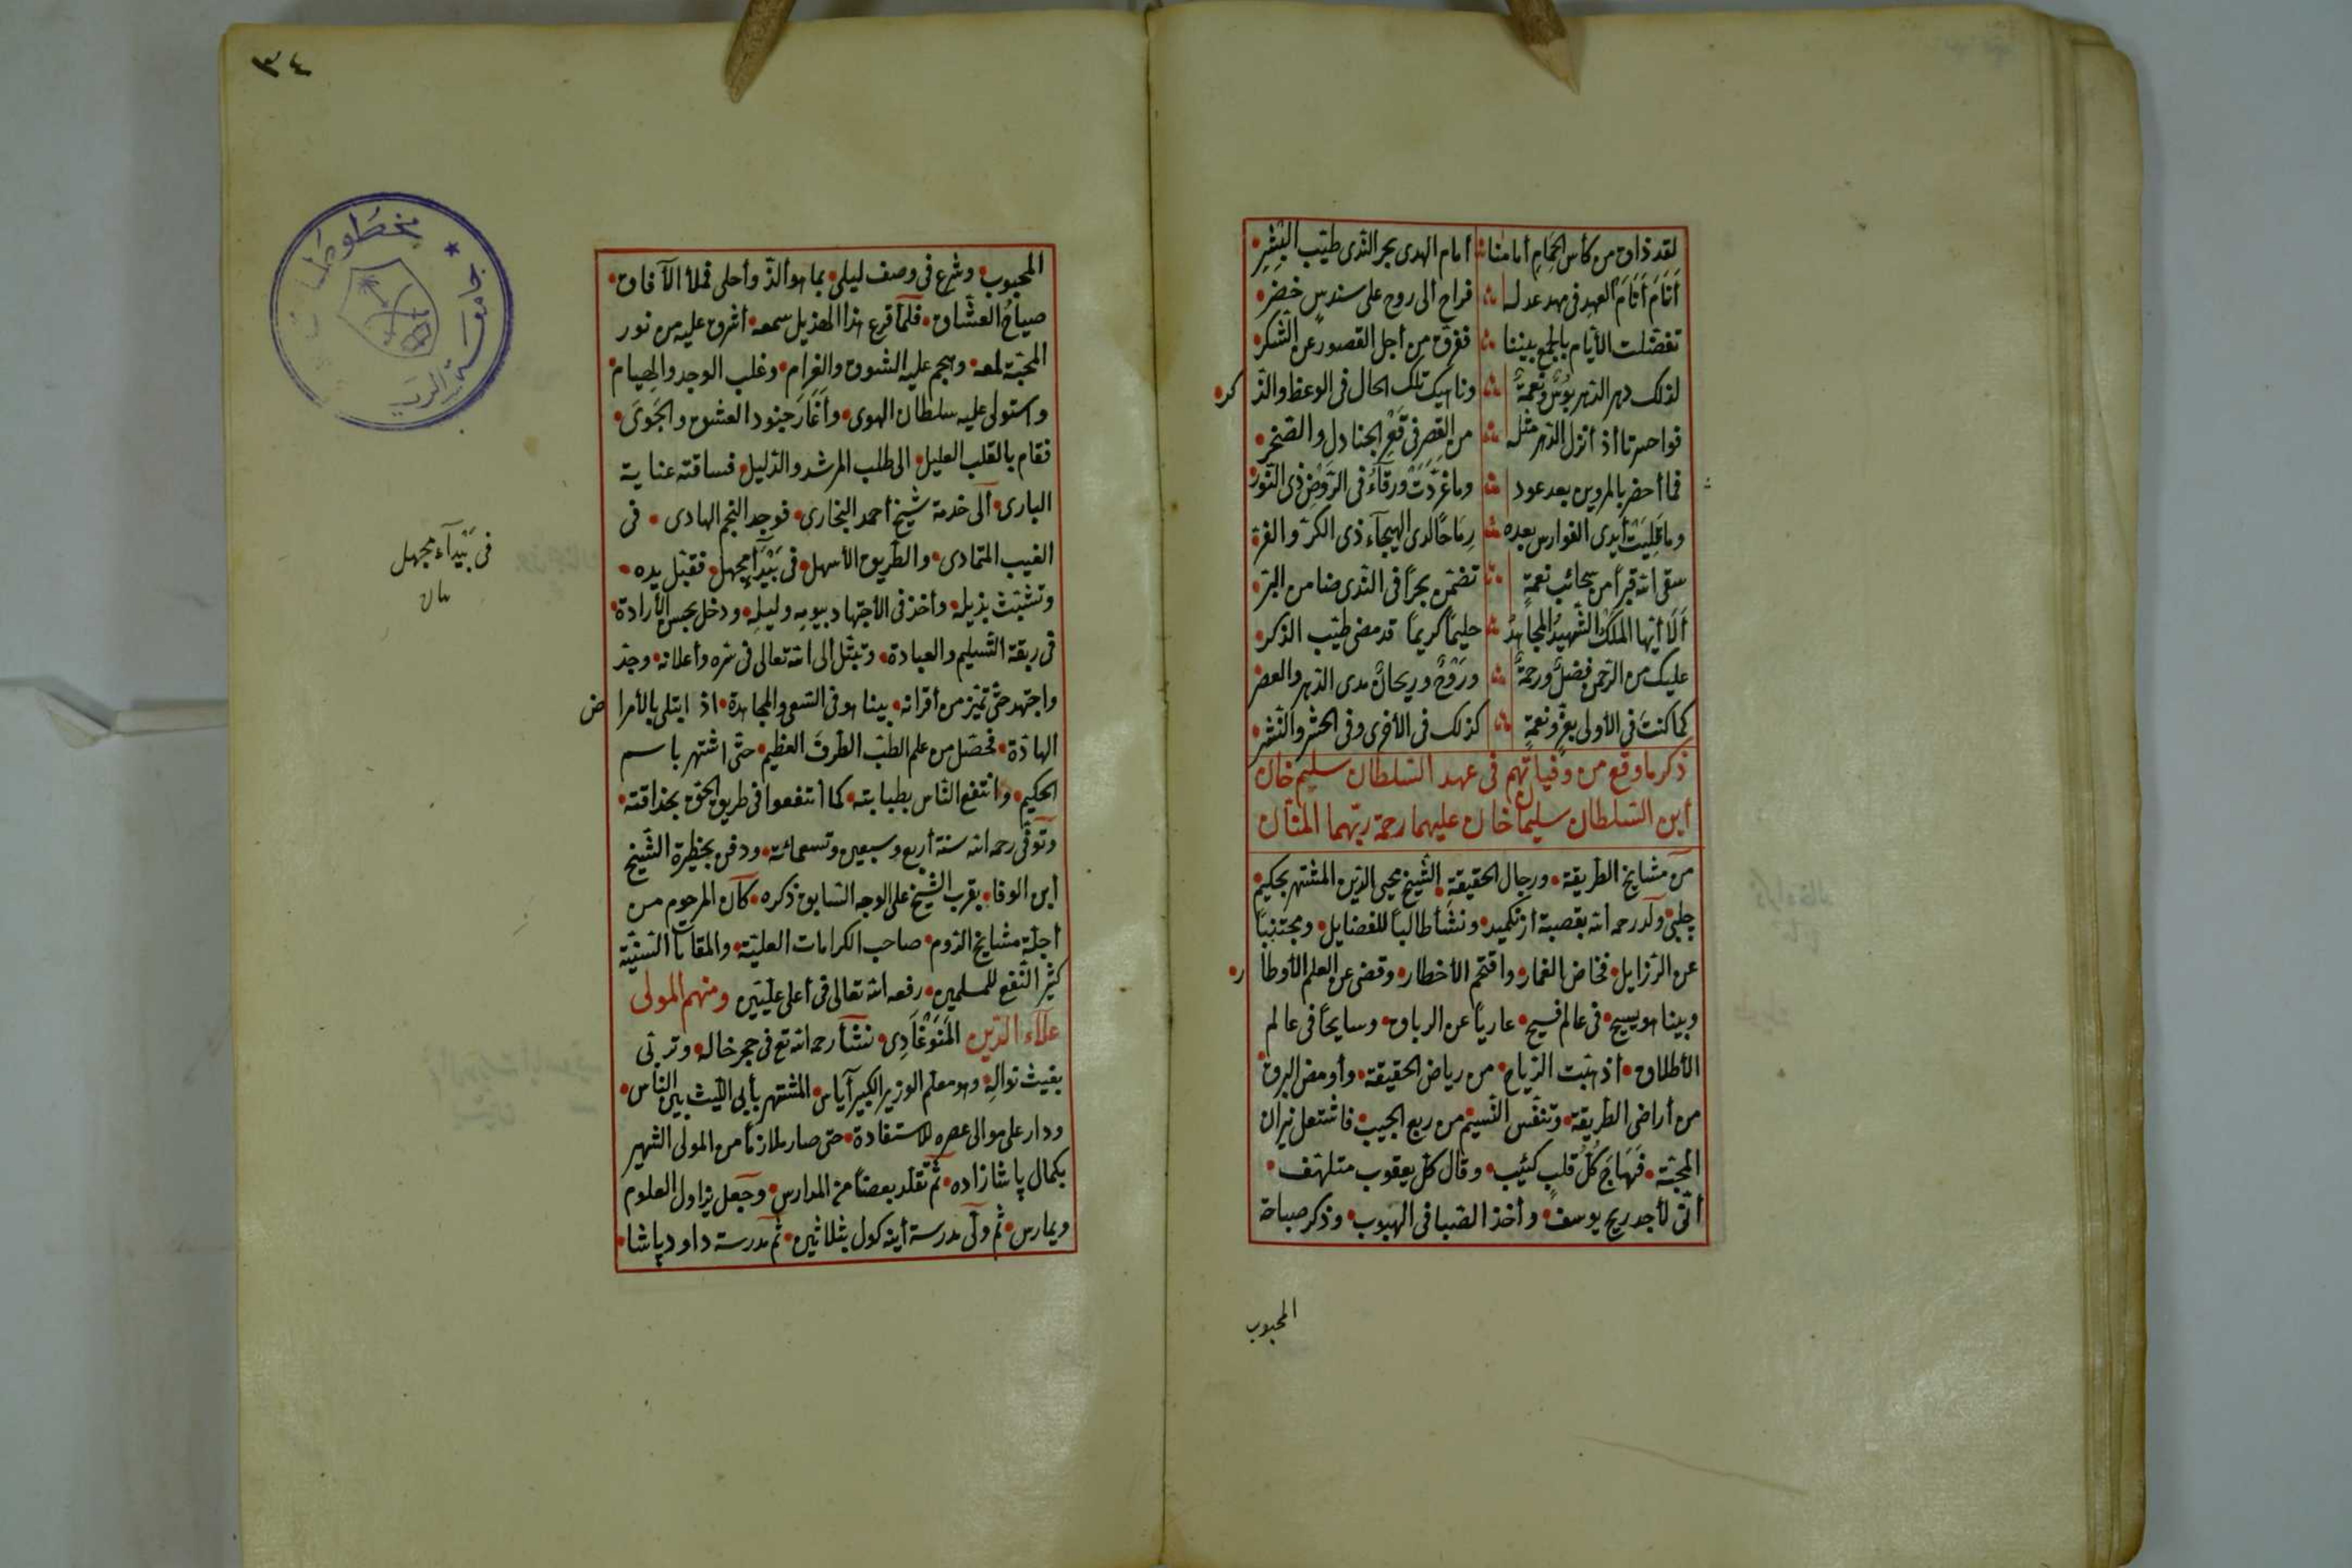 لقد ذاق من كأس الحمام أمامنا أمام الهدى بحر الندى طيب البشر
أنام أنام العهد فى مهد عدله فراح الى روح على سندس خضر
تفضلت الأيام بالجمع بيننا ففرق من أجل القصور عن الشكر
لذلك دهر الدهر بؤس ونعمة وناهيك تلك الحال فى الوعظ والذكر
فواحسرتا أذ أنزل الدهر مثله من القصر فى قعر الجنادل والصخر
فما أحضر بالمروين بعد عود وما غردت ورقاء فى الروض ذى النور
وما قليت أيدى الفوارس بعده رماحا لدى الهيجاء ذى الكر والفر
سقى الله قبرا من سحائب نعمة تضمن بحرا فى الندى ضامن البر
ألا أيها الملك الشهيد المجاهد حليما كريما قد مضى طيب الذكر
عليك من الرحمن فضل ورحمة وروح وريحان مدى الدهر والعصر
كما كنت فى الأولى بعز ونعمة كذلك فى الأخرى وفى الحشر والنشر
ذكر ما وقع من وفياتهم فى عهد السلطان سليم خان
أبن السلطان سليمان خان عليهما رحمة ربهما المنان
من مشايخ الطريقة ورجال الحقيقة الشيخ محيى الدين المشتهر بحكيم
چلبى ولد رحمه الله بقصبة أزنكميد ونشأ طالبا للفضايل ومجتنبا
عن الرزايل فخاض الغمار واقتحم الأخطار وقضى عن العلم الأوطار
وبينا هو يسيح فى عالم فسيح عاريا عن الرباق وسايحا فى عالم
الأطلاق أذ هبت الرياح من رياض الحقيقة وأومض البرق
من أراضى الطريقة وتنفس النسيم من ربع الحبيب فاشتعل نيران
المحبة فهاج كل قلب كئيب وقال كل يعقوب متلهف
أنى لأجد ريح يوسف وأخذ الصبا فى الهبوب وذكر صباحة
المحبوب
٣٤
مخطوطات
جامعة الرياض
المحبوب وشرع فى وصف ليلى بما هو ألذ وأحلى فملأ الآفاق
صياح العشاق فلما قرع هذا الهذيل سمعه أشرق عليه من نور
المحبة لمعه وهجم عليه الشوق والغرام وغلب الوجد والهيام
واستولى عليه سلطان الهوى وأغار جنود العشق والجوى
فقام بالقلب العليل الى طلب المرشد والدليل فساقته عناية
البارى ألى خدمة شيخ أحمد البخارى فوجد النجم الهادى فى
الغيب المتمادى والطريق الأسهل فى بيداء مجهل فقبل يده
وتشبث بذيله وأخذ فى الأجتهاد بيومه وليله ودخل بحبس الأرادة
فى ربقة التسليم والعبادة وتبتل ألى الله تعالى فى سره وأعلانه وجد
واجتهد حتى تميز من أقرانه بينا هو فى السعى والمجاهدة اذ ابتلى بالأمراض
الهادة فحصل من علم الطب الطرف العظيم حتى اشتهر باسم
الحكيم وانتفع الناس بطبابته كما أنتفعوا فى طريق الحق بحذاقته
وتوفى رحمه الله سنة أربع وسبعين وتسعمائة ودفن بحظيرة الشيخ
أبن الوفا بقرب الشيخ على الوجه السابق ذكره كان المرحوم من
أجلة مشايخ الروم صاحب الكرامات العلية والمقامات السنية
كثير النفع للمسلمين رفعه الله تعالى فى أعلى عليين ومنهم المولى
علاء الدين المنوغادى نشأ رحمه الله تع فى حجر خاله وتربى
بغيث نواله وهو معلم الوزير الكبير آياس المشتهر بأبى الليث بين الناس
ودار على موالى عصره للاستفادة حتى صار ملازما من المولى الشهير
بكمال پاشا زاده ثم تقلد بعضا من المدارس وجعل يزاول العلوم
ويمارس ثم ولى مدرسة أينه كول بثلاثين ثم مدرسة داود پاشا
فى بيداء مجهل